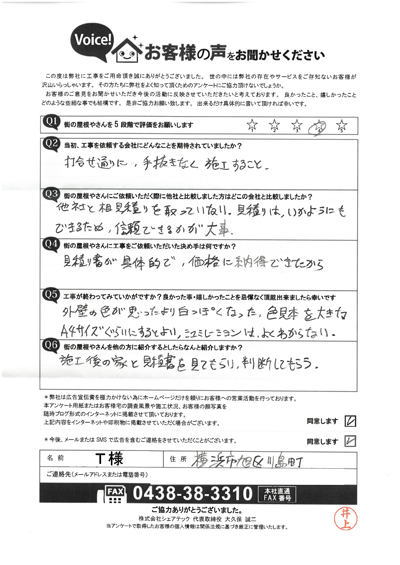 Voice!
お客様の声をお聞かせください
この度は弊社に工事をご用命頂き誠にありがとうございました。世の中には弊社の存在やサービスをご存知ないお客様が
沢山いらっしゃいます。その方たちに弊社をよく知って頂くためのアンケートにご協力頂けないでしょうか。
お客様のご意見をお聞かせいただき今後の活動に反映させていただきたいと考えております。良かったこと、嬉しかったこと
どのような些細な事でも結構です。是非ご協力お願い致します。出来るだけ具体的に書いて頂ければ幸いです。
Q1 街の屋根やさんを5段階で評価をお願いします ☆ ☆ ☆ ☆ ☆
Q2 当初、工事を依頼する会社にどんなことを期待されていましたか?
打合せ通りに、手抜きなく施工すること。
Q3 街の屋根やさんにご依頼いただく際に他社と比較しました方はどこの会社と比較しましたか?
他社と相見積りを取っていない。見積りは、いかようにも
できるため、信頼できるかが大事。
Q4 街の屋根やさんに工事をご依頼いただいた決め手は何ですか?
見積り書が具体的で、価格に納得できたから
Q5 工事が終わってみていかがですか?良かった事・嬉しかったことを忌憚なく頂戴出来ましたら幸いです
外壁の色が思ったより白っぽくなった、色見本を大きな
A4サイズぐらいにするとよい、シュミレーションは、よくわからない。
Q6 街の屋根やさんを他の方に紹介するとしたらなんと紹介しますか?
施工後の家と見積書を見てもらい、判断してもらう。
※弊社は広告宣伝費を極力かけない為にホームページだけを頼りにお客様への営業活動を行っております。
本アンケート用紙またはお客様宅の調査風景や施工状況、お客様の顔写真を
随時ブログ形式のインターネットに掲載させて頂いております。
上記内容をインターネットや印刷物に掲載させていただく場合がございます。 同意します ☑
※今後、メールまたは SMS で広告を含むご連絡をさせていただくことがございます。 同意します ☑
名前 T様 住所 横浜市旭区川島町
ご連絡先(メールアドレスまたは電話番号)
FAX 0438-38-3310 本社直通 FAX 番号
ご協力ありがとうございました。
株式会社シェアテック 代表取締役 大久保 誠二
当アンケートで取得したお客様の個人情報は関係法規に基づき厳正に管理いたします。
井上